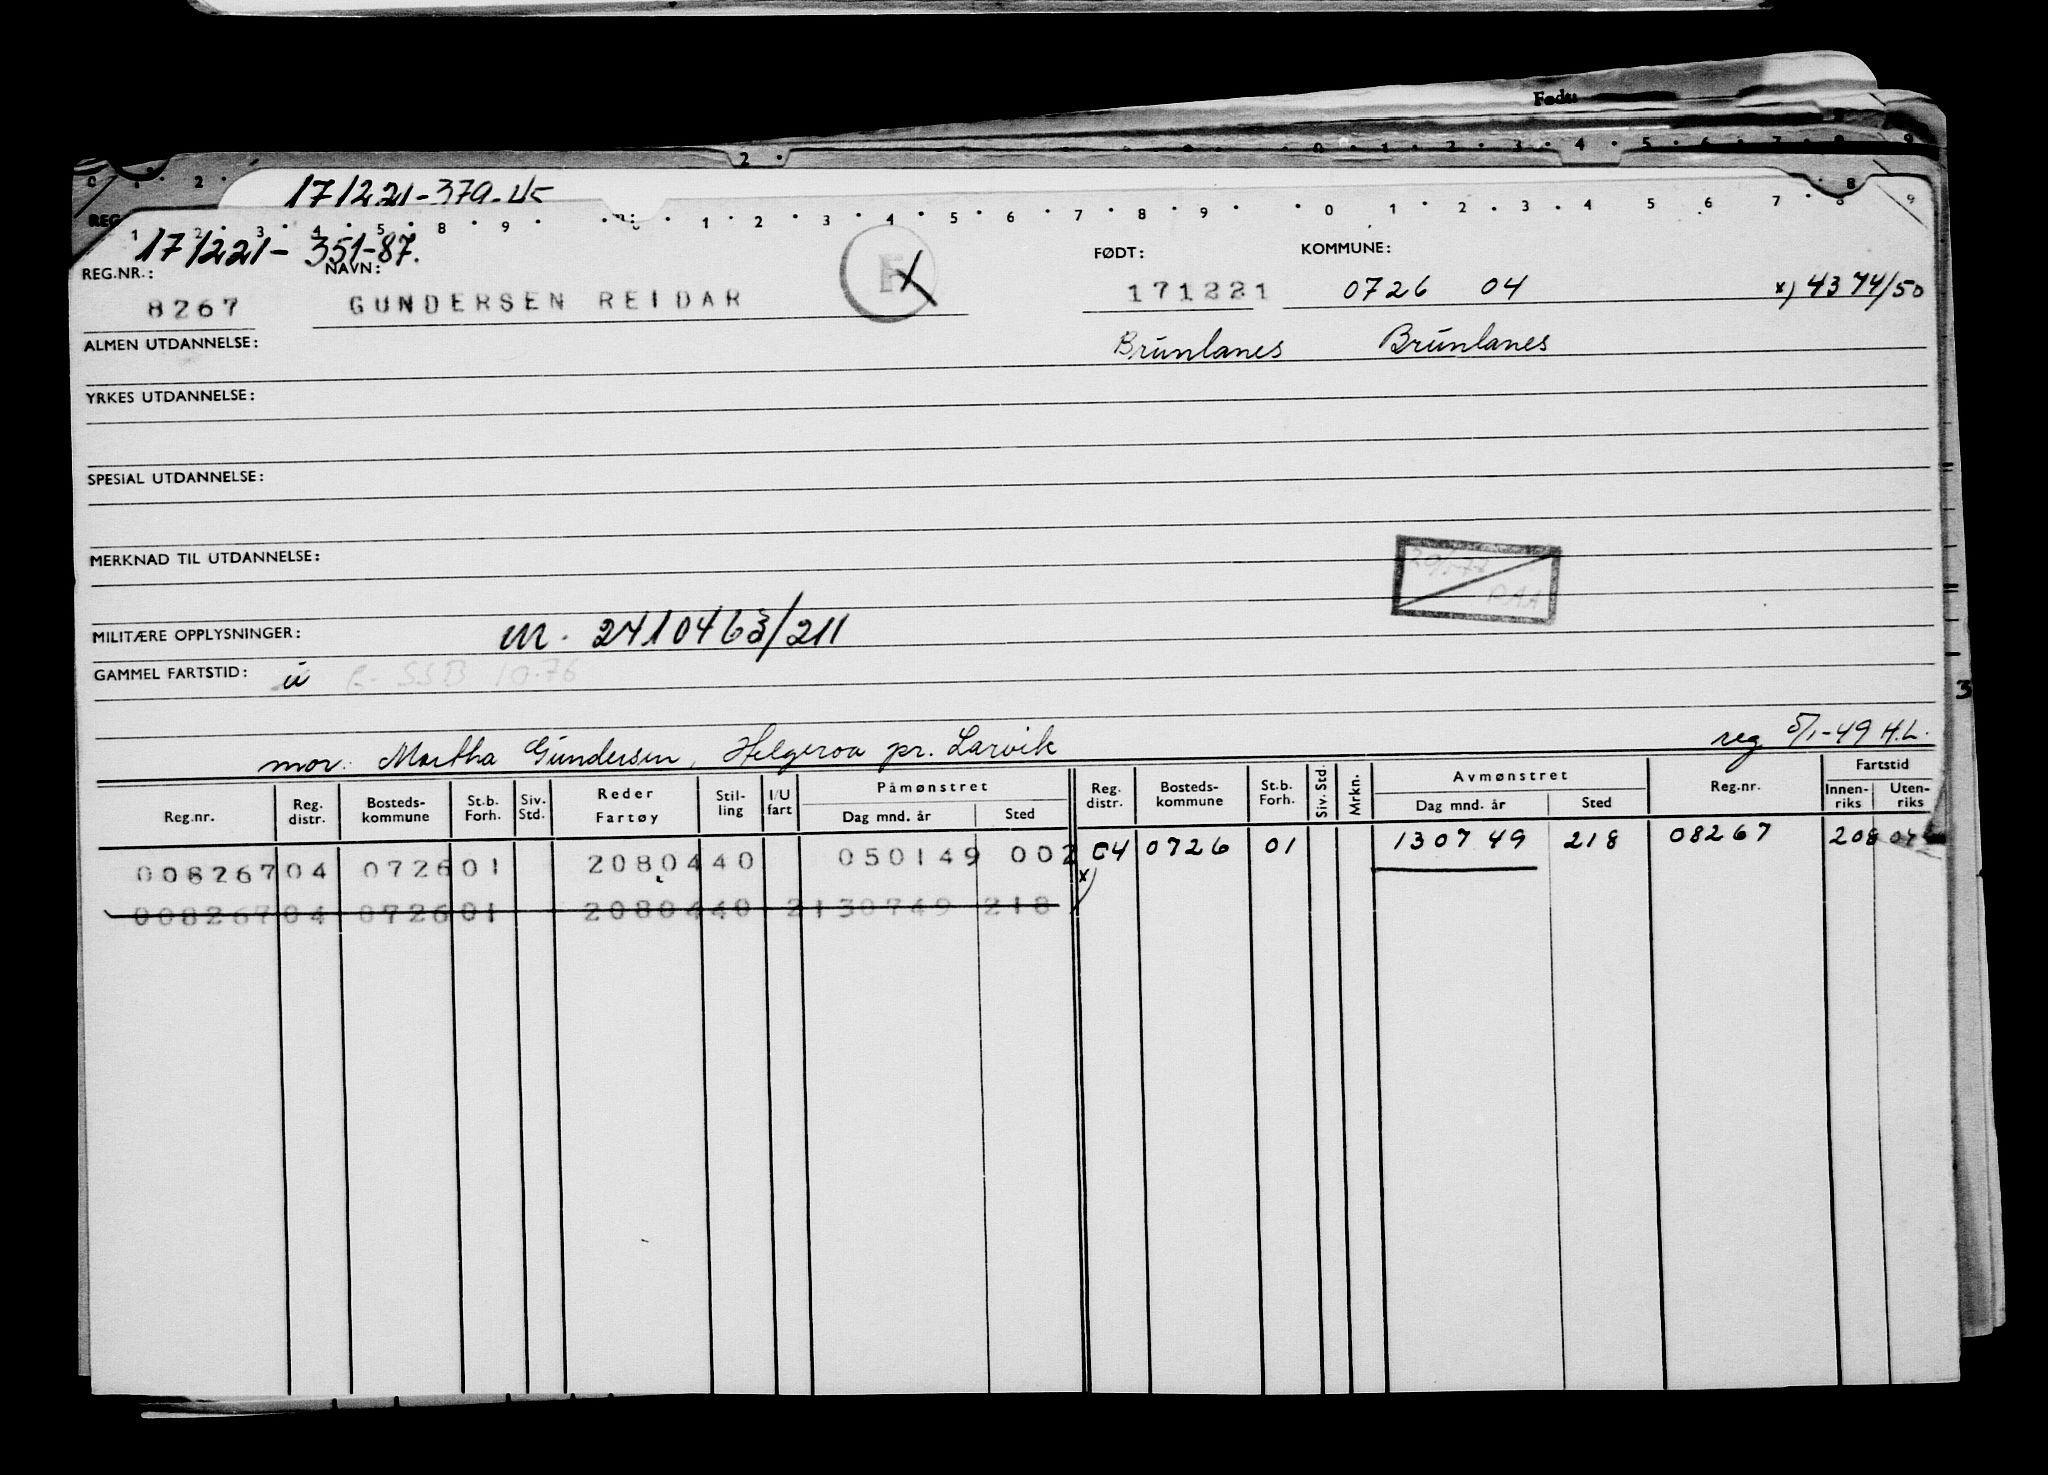 Født:
0 1 · 2 · 2 · 0 · 1 · 2 · 3 · 4 · 5 · 6 · 7 · 8 9
171221-379-45
REG
1 · 2 · 3 · 4 · 5 · 8 · 9 · 1 · 2 · 3 · 4 · 5 · 6 · 7 · 8 · 9 · · 0 1 · 2 · 3 · 4 5 6 7 · 8 9
171221-351-87.
REG.NR.: NAVN: FØDT: KOMMUNE:
8267 GUNDERSEN REIDAR E x 171221 0726 04 x) 4374/50
ALMEN UTDANNELSE: Brunlanes Brunlanes
YRKES UTDANNELSE:
SPESIAL UTDANNELSE:
MERKNAD TIL UTDANNELSE:
RAA
MILITÆRE OPPLYSNINGER: M. 2410463/211
GAMMEL FARTSTID: u E-SSB 10-76
mor: Martha Gundersen, Helgeroa pr. Larvik reg 5/1-49 H.L.
Reg.nr. Reg. distr. Bosteds-kommune St.b. Forh. Siv. Std. Reder Fartøy Stil-ling I/U fart Påmønstret Dag mnd. år Sted Reg. distr. Bosteds-kommune St.b. Forh. Siv. Std. Mrkn. Avmønstret Dag mnd. år Sted Reg.nr. Fartstid Innen-riks Uten-riks
008267 04 0726 01 2080440 050149 002 04 0726 01 130749 218 08267 208
x)
008267 04 0726 01 2080440 2 130749 218
3